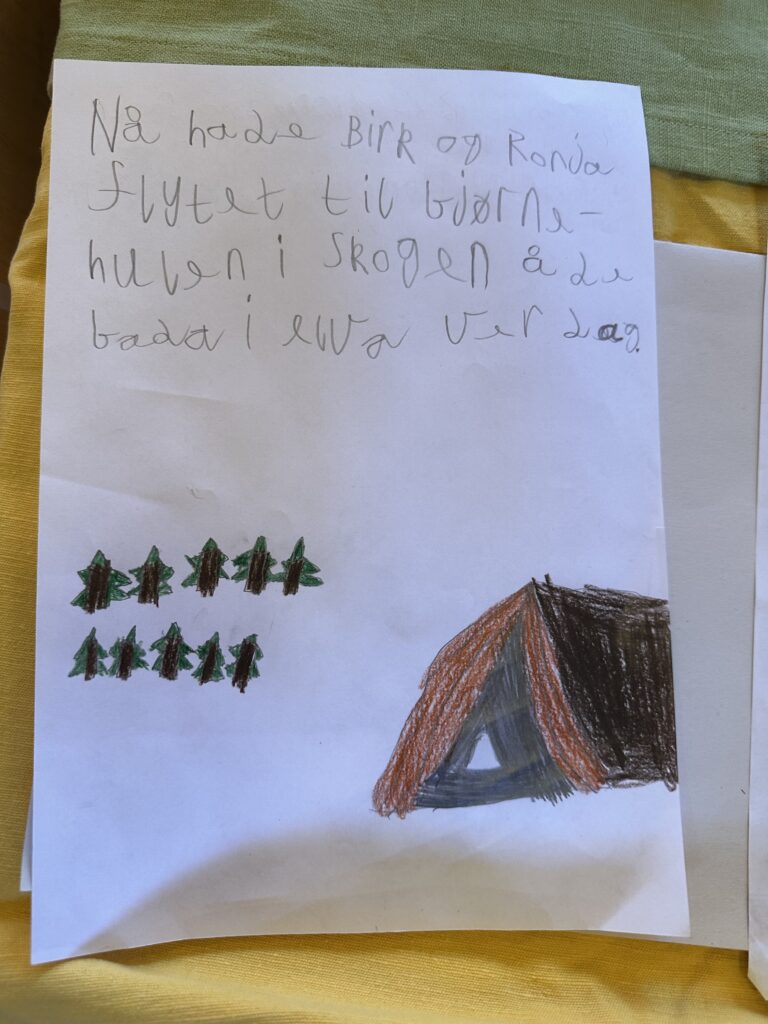 Nå hade Birk og Ronja
flytet til bjørne-
hulen i skogen å de
badet i elva ver dag.